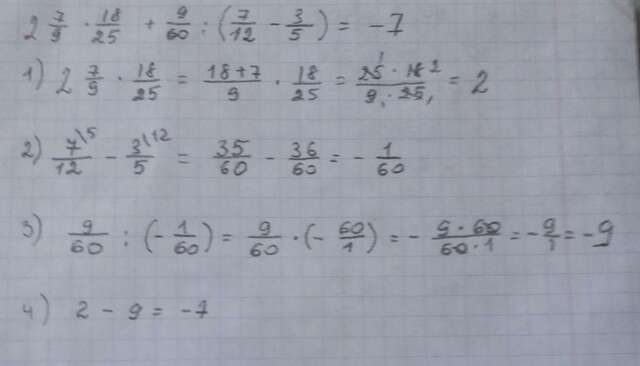 2 7/9 · 18/25 + 9/60 : (7/12 - 3/5) = -7
1) 2 7/9 · 18/25 = (18+7)/9 · 18/25 = (25¹ · 18²)/(9₁ · 25₁) = 2
2) 7\5/12 - 3\12/5 = 35/60 - 36/60 = - 1/60
3) 9/60 : (- 1/60) = 9/60 · (- 60/1) = - (9 · 60)/(60 · 1) = - 9/1 = -9
4) 2 - 9 = -7